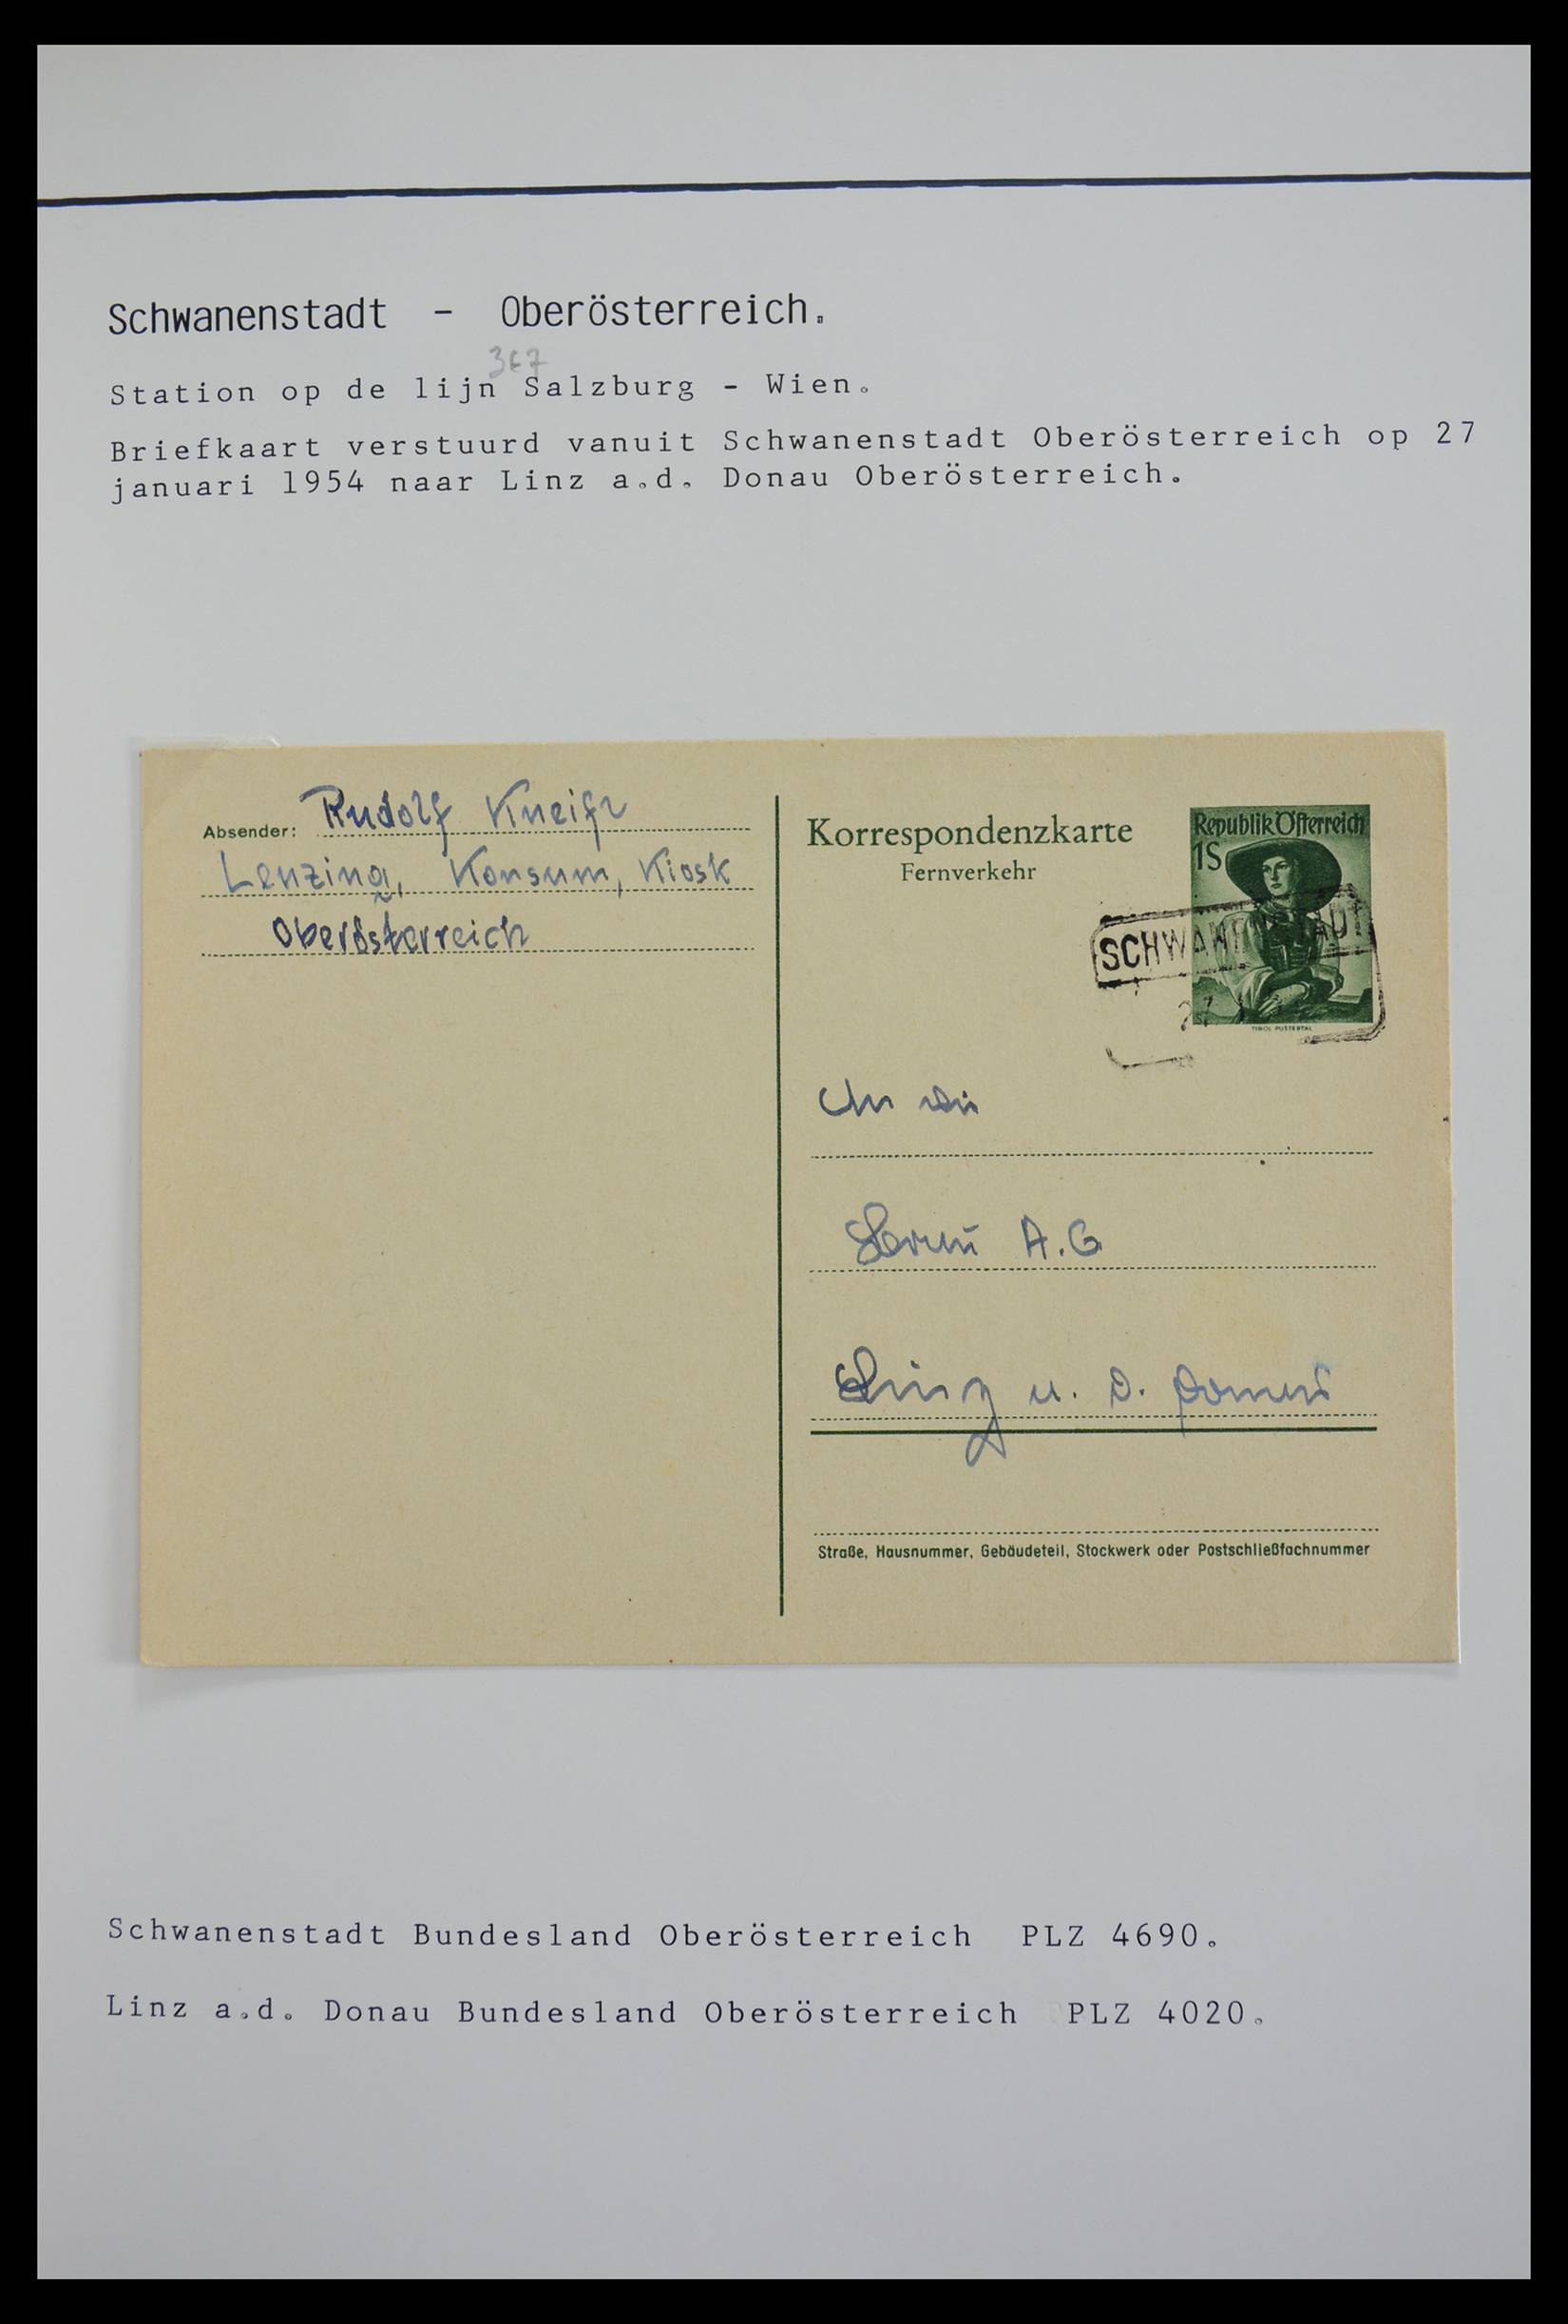 Schwanenstadt - Oberösterreich.
367
Station op de lijn Salzburg - Wien.
Briefkaart verstuurd vanuit Schwanenstadt Oberösterreich op 27
januari 1954 naar Linz a.d. Donau Oberösterreich.
Absender: Rudolf
Lenzing, Konsum, Kiosk
Oberösterreich
Korrespondenzkarte
Fernverkehr
Republik Österreich
1S
TIROL PUSTERTAL
SCHWANENSTADT
27
An die
A.G
Linz a. d. Donau
Straße, Hausnummer, Gebäudeteil, Stockwerk oder Postschließfachnummer
Schwanenstadt Bundesland Oberösterreich PLZ 4690.
Linz a.d. Donau Bundesland Oberösterreich PLZ 4020.